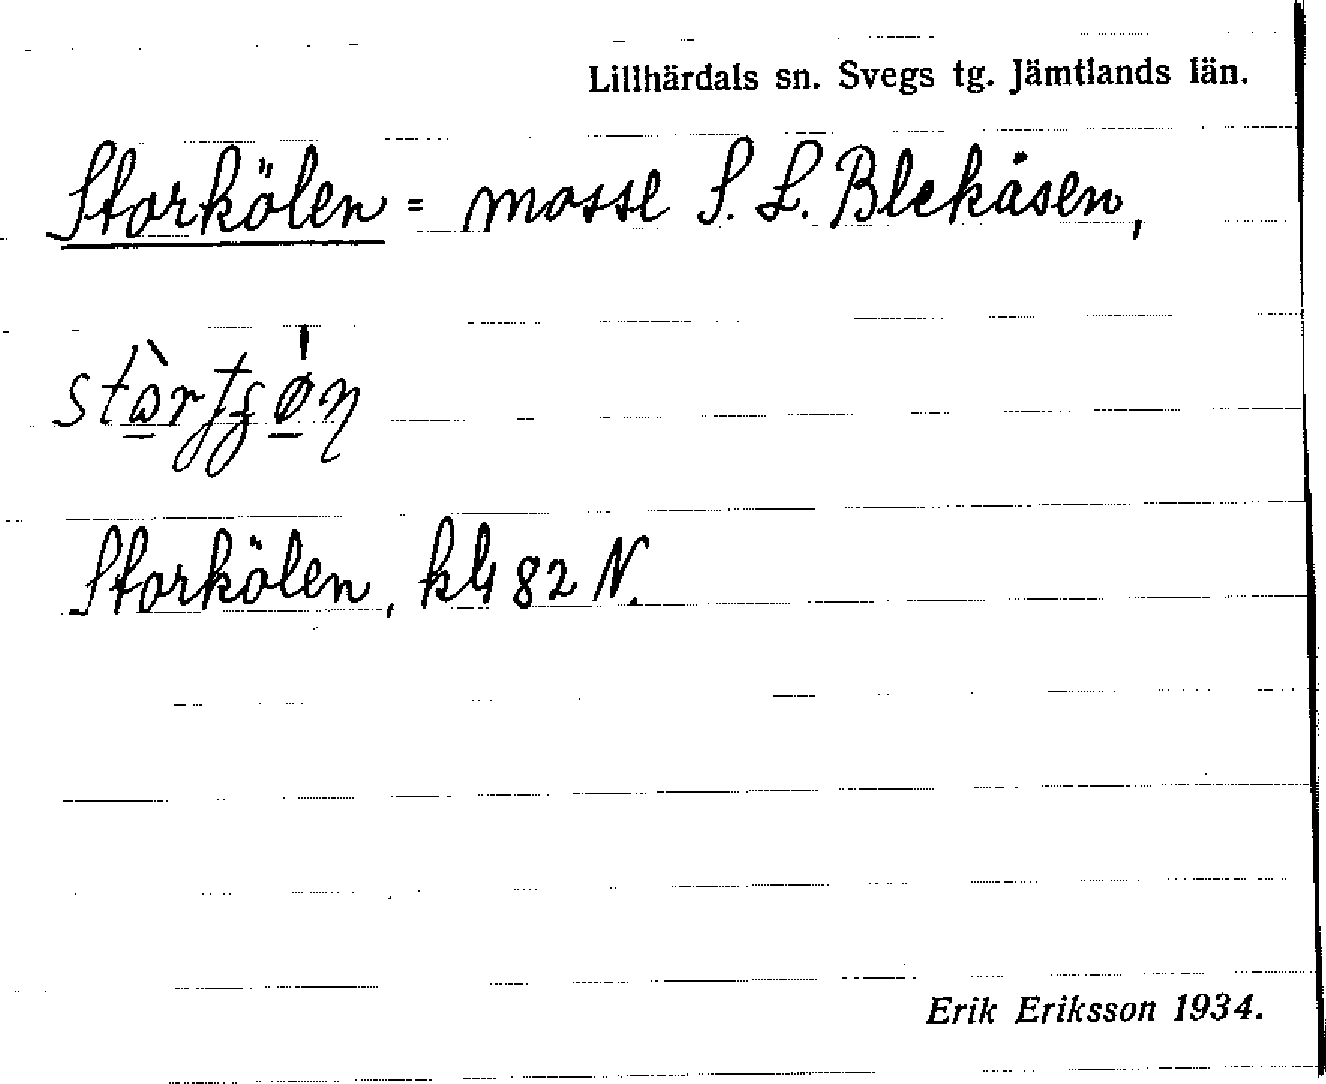 Lillhärdals sn. Svegs tg. Jämtlands län.
Storkölen = mosse S. L. Blekåsen,
Storkölen, kbl 82 N.
Erik Eriksson 1934.